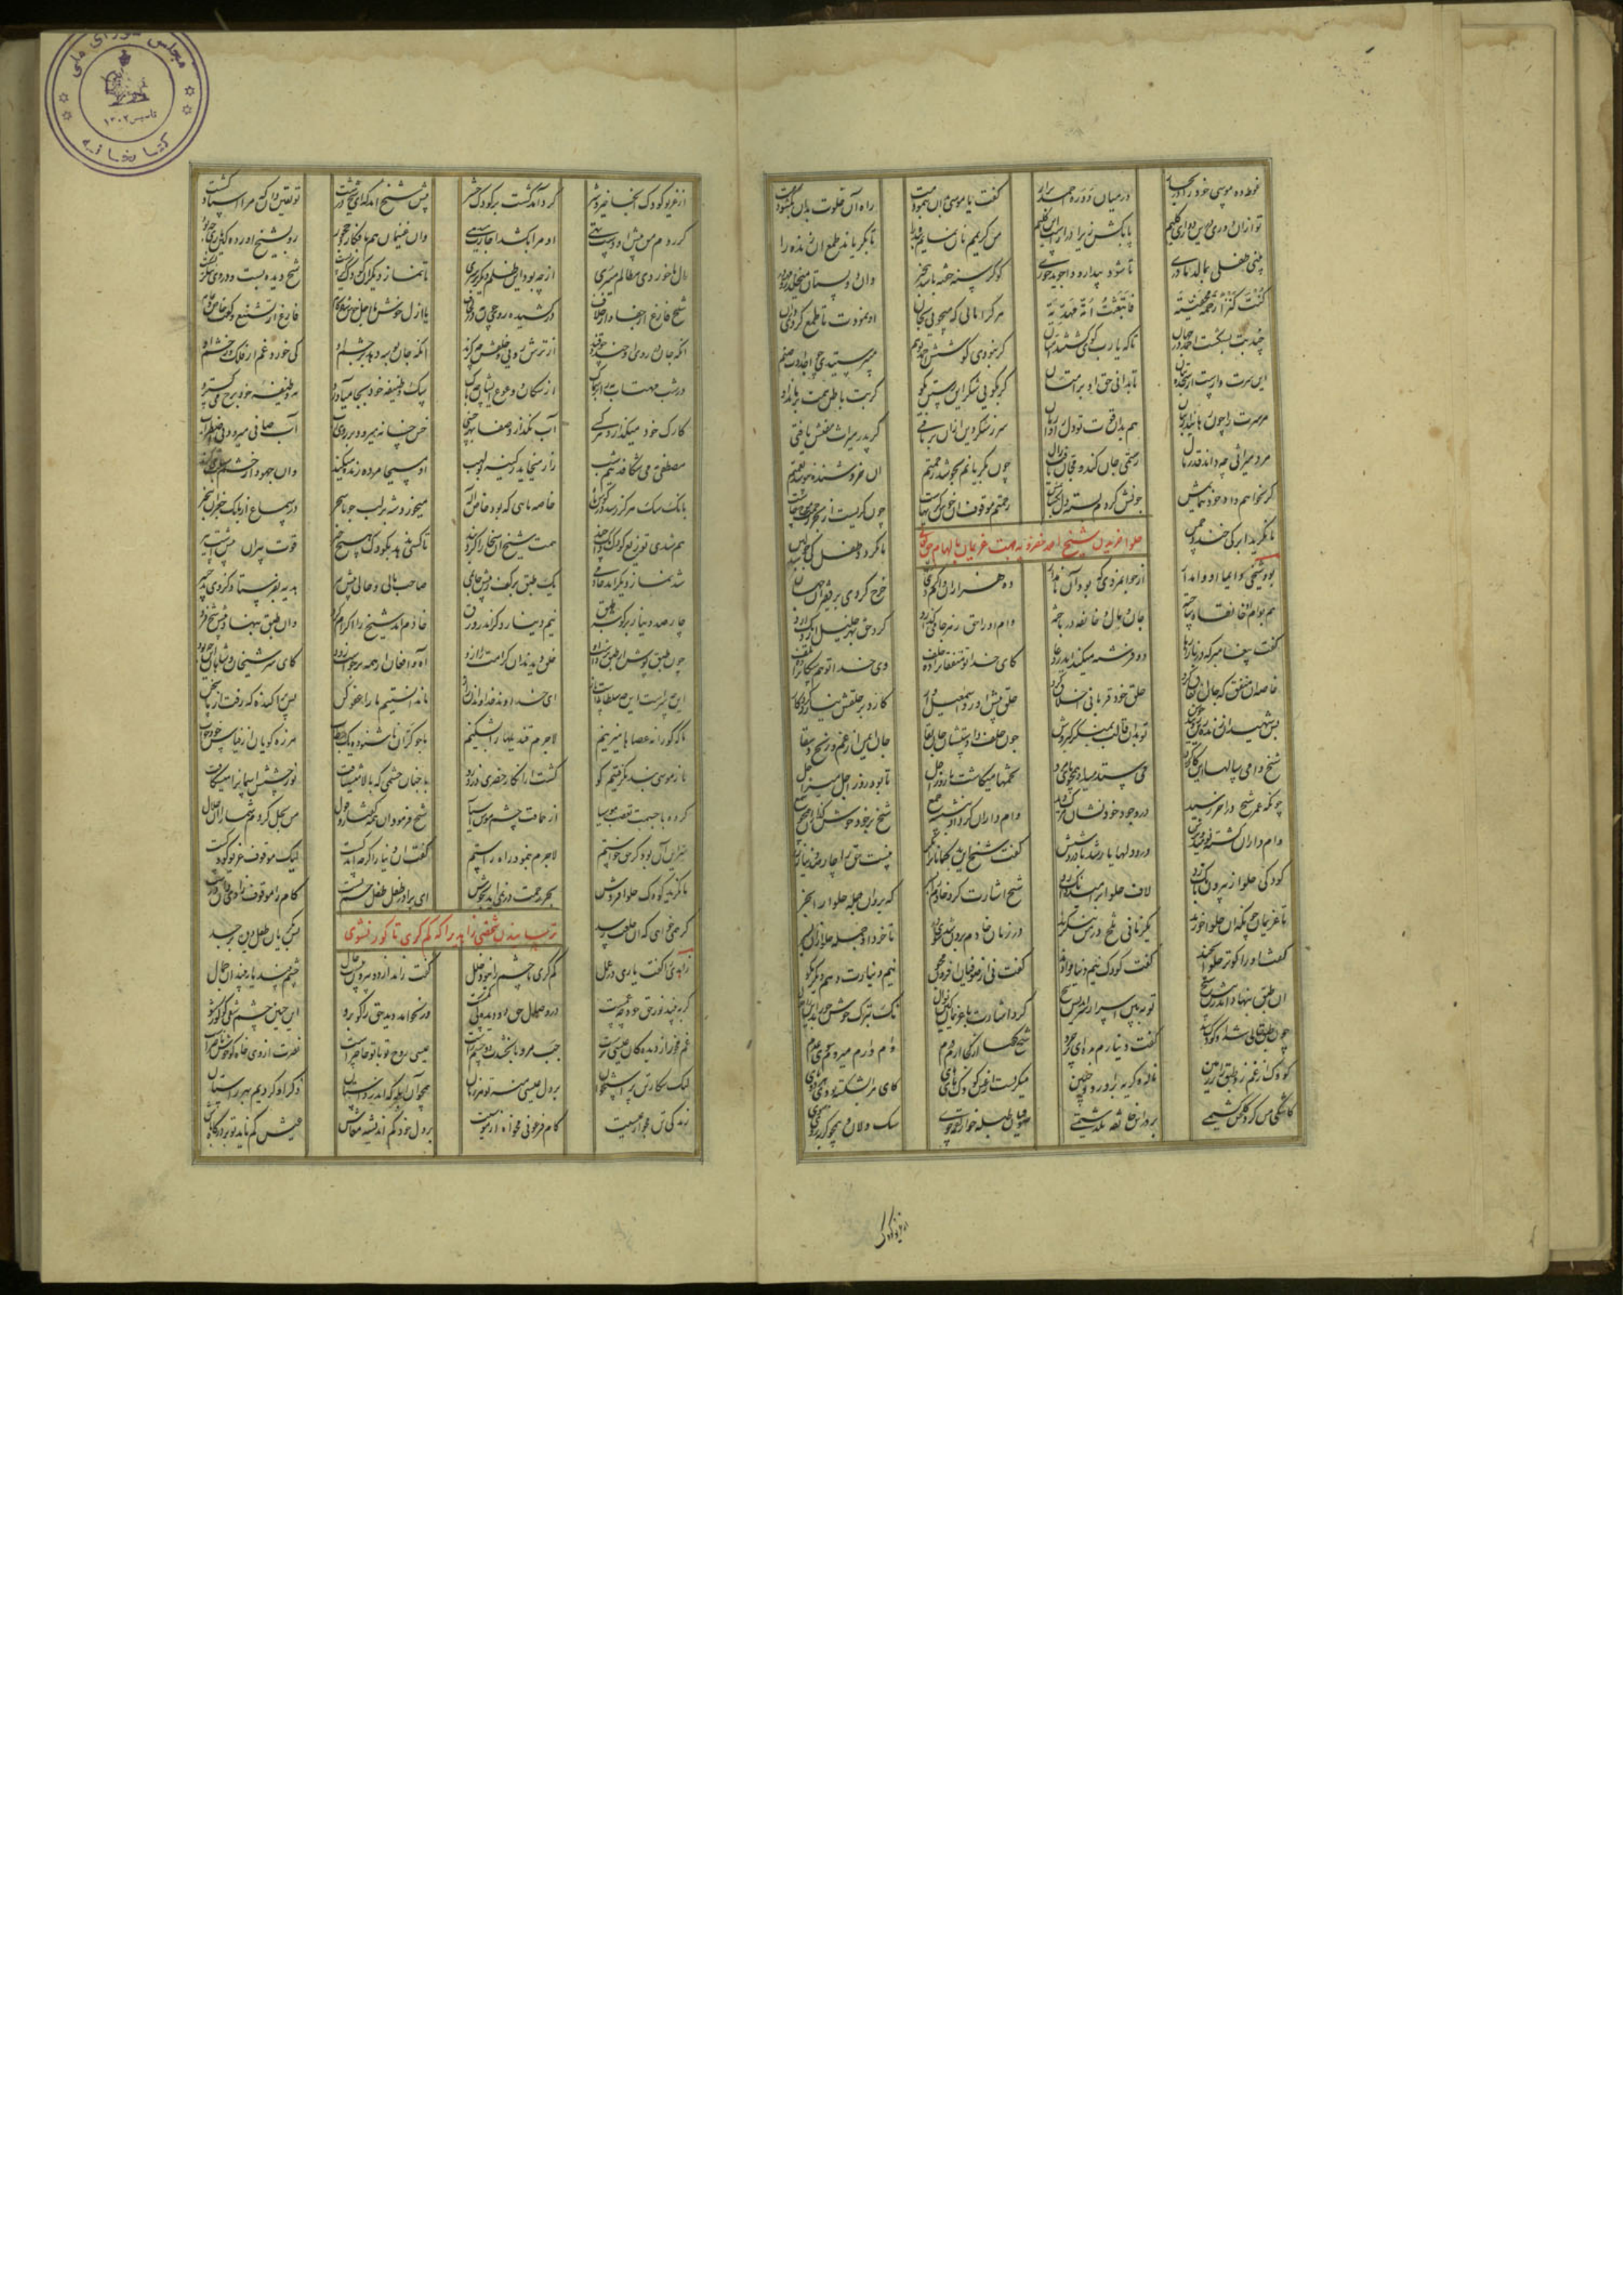 غوطه ده موسی خود را در بحار در میان دوره احمد برار گفت یا موسی بدان بنمودمت راه آن خلوت بدان بگشودمت
تو ازان دوری درین دور ای کلیم پا بکش زیرا دراز است این گلیم من کریمم نان نمایم بنده را تا بگریاند طمع آن زنده را
بینی طفلی بمالد مادری تا شود بیدار و واجوید خوری کو گرسنه خفته باشد بیخبر وان دو پستان میخلد
كُنْتَ كَنْزاً رَحْمَةً مَخْفِيَّةً فَابْتَعَثْتَ اُمَّةً مَهْدِيَّةً هر کراماتی که میجویی بجان او نمودت تا طمع کردی دران
چند بت بشکست احمد در جهان تا که یا رب گوی گشتند امتان گر نبودی کوشش احمد تو هم میپرستیدی چو اجدادت صنم
این سرت وارست از سجده بتان تا بدانی حق او بر امتان گر بگویی شکر این رستن بگو کز بت باطن همت برهاند او
مر سرت را چون رهانید از بتان هم بدان قوت تو دل را وارهان سر ز شکر دین ازان برتافتی کز پدر میراث مفتش یافتی
مرد میراثی چه داند قدر مال رستمی جان کند و مجان یافت زال چون بگریانم بجوشد رحمتم آن خروشنده بنوشد نعمتم
گر نخواهم داد خود ننمایمش چونش کردم بسته دل بگشایمش رحمتم موقوف آن خوش گریهاست چون گریست از بحر رحمت موج خاست
تا نگرید ابر کی خندد چمن تا نگرید طفل کی جوشد لبن
حلوا خریدن شیخ احمد خضرویه جهت غریمان بالهام حق
بود شیخی دایما او وامدار از جوانمردی که بود آن نامدار ده هزاران وام کردی خرج کردی بر فقیران جهان
هم بوام او خانقاهی ساخته جان و مال و خانقه در باخته وام او را حق ز هر جا می گزارد کرد حق بهر خلیل از ریگ آرد
گفت پیغامبر که در بازارها دو فرشته میکند ایدر دعا کای خدا تو منفقان را ده خلف وی خدا تو ممسکان را ده تلف
خاصه آن منفق که جان انفاق کرد حلق خود قربانی خلاق کرد حلق پیش آورد اسمعیل وار کارد بر حلقش نیارد کرد کار
پس شهیدان زنده زین رویند و خوش تو بدان قالب بمنگر گبروش چون خلف دادستشان جان بقا جان ایمن از غم و رنج و شقا
شیخ وامی سالها این کار کرد می ستد میداد همچون پای مرد تخمها میکاشت تا روز اجل تا بود روز اجل میر اجل
چونکه عمر شیخ در آخر رسید در وجود خود نشان مرگ دید وام داران گرد او بنشسته جمع شیخ بر خود خوش گدازان همچو شمع
وام داران گشته نومید و ترش درد دلها یار شد با درد شش گفت شیخ این بدگمانان را نگر نیست حق را چار صد دینار زر
کودکی حلوا ز بیرون بانگ زد لاف حلوا بر امید دانگ زد شیخ اشارت کرد خادم را بسر که برو آن جمله حلوا را بخر
تا غریمان چونکه آن حلوا خورند یکزمانی تلخ در من ننگرند در زمان خادم برون شد سوی در تا خرد او جمله حلوا زان پسر
گفت او را کوترو حلوا بچند گفت کودک نیم دینار و اند گفت نی از صوفیان افزون مجو نیم دینارت دهم دیگر مگو
آن طبق بنهاد اندر پیش شیخ تو ببین اسرار سر اندیش شیخ کرد اشارت با غریمان کین نوال نک تبرک خوش خورید این را حلال
چون طبق خالی شد آن کودک ستد گفت دینارم بده ای پر خرد شیخ گفتا از کجا آرم درم وام دارم میروم سوی عدم
کودک از غم زد طبق را بر زمین ناله و گریه برآورد و حنین میگریست از غبن کودک های های کای مرا بشکسته بودی هر دو پای
کاشکی من گرد گلخن گشتمی بر در این خانقه نگذشتمی صوفیان طبل خوار لقمه جوی سگ دلان و همچو گربه روی شوی
از غریو کودک
از غریو کودک آنجا خیر و شر گرد آمد گشت بر کودک حشر پیش شیخ آمد که ای شیخ درشت تو یقین دان که مرا استاد کشت
گر روم من پیش او دست تهی او مرا بکشد اجازت میدهی وان غریمان هم بانکار و جحود رو بشیخ آورده کین بازی چه بود
مال ما خوردی مظالم میبری از چه بود این ظلم دیگر بر سری تا نماز دیگر آن کودک گریست شیخ دیده بست و در وی ننگریست
شیخ فارغ از جفا و از خلاف در کشیده روی چون مه در لحاف با ازل خوش با اجل خوش شادکام فارغ از تشنیع و گفت خاص و عام
آنکه جان در روی او خندد چو قند از ترش رویی خلقش چه گزند آنکه جان بوسه دهد بر چشم او کی خورد غم از فلک وز خشم او
در شب مهتاب مه را بر سماک از سگان و عوعو ایشان چه باک سگ وظیفه خود بجا می آورد مه وظیفه خود برخ می گسترد
کارک خود میگذارد هر کسی آب نگذارد صفا بهر خسی خس خسانه میرود بر روی آب آب صافی میرود بی اضطراب
مصطفی مه می شکافد نیمشب ژاژ میخاید ز کینه بولهب آن مسیحا مرده زنده میکند وان جهود از خشم سبلت میکند
بانگ سگ هرگز رسد در گوش ماه خاصه ماهی که بود خاص اله میخورد شه بر لب جو تا سحر در سماع از بانگ چغزان بیخبر
هم شدی توزیع کودک دانگ چند همت شیخ آن سخا را کرد بند تا کسی ندهد بکودک هیچ چیز قوت پیران ازین بیش است نیز
شد نماز دیگر آمد خادمی یک طبق بر کف ز پیش حاتمی صاحب مالی و حالی پیش پیر هدیه بفرستاد کز وی بد خبیر
چار صد دینار بر گوشه طبق نیم دینار دگر اندر ورق خادم آمد شیخ را اکرام کرد وان طبق بنهاد پیش شیخ فرد
چون طبق پوش از طبق برداشت خلق دیدند آن کرامت را ازو آه و افغان از همه برخاست زود کای سر شیخان و شاهان این چه بود
این چه سرست این چه سلطانیست باز ای خداوند خداوندان راز ما ندانستیم ما را عفو کن بس پراکنده که رفت از ما سخن
ما که کورانه عصاها میزنیم لاجرم قندیلها را بشکنیم ما چو کران ناشنیده یک خطاب هرزه گویان از قیاس خود جواب
ما ز موسی پند نگرفتیم کو گشت از انکار خضری زرد رو با چنان چشمی که بالا میشتافت نور چشمش آسمان را میشکافت
کرده با چشمت تعصب موسیا از حماقت چشم موش آسیا شیخ فرمود آن همه گفتار و قال من بحل کردم شما را آن حلال
سر این آن بود کز حق خواستم لاجرم بنمود راه راستم گفت آن دینار اگرچه اندکست لیک موقوف غریو کودکست
تا نگرید کودک حلوا فروش بحر رحمت در نمی آید بجوش ای برادر طفل طفل چشم تست کام را موقوف زاری دان درست
گر همی خواهی که آن خلعت رسد پس بگریان طفل دیده بر جسد
ترسانیدن شخصی زاهد را که کم گری تا کور نشوی
زاهدی را گفت یاری در عمل کم گری تا چشم را ناید خلل گفت زاهد از دو بیرون نیست حال چشم بیند یا نبیند آن جمال
گر ببیند نور حق خود چه غمست در وصال حق دو دیده کی کمست ور نخواهد دید حق را گو برو این چنین چشم شقی گو کور شو
غم مخور از دیده کان عیسی تراست چپ مرو تا بخشدت دو چشم راست عیسی روح تو با تو حاضر است نصرت از وی خواه کو خوش ناصر است
لیک بیگار تن پر استخوان بر دل عیسی منه تو هر زمان همچو آن ابله که اندر داستان ذکر او کردیم بهر راستان
زندگی تن مجو از عیسیت کام فرعونی مخواه از موسیت بر دل خود کم نه اندیشه معاش عیش کم ناید تو بر درگاه باش
مجلس شورای ملی
تاسیس ۱۳۰۲
کتابخانه